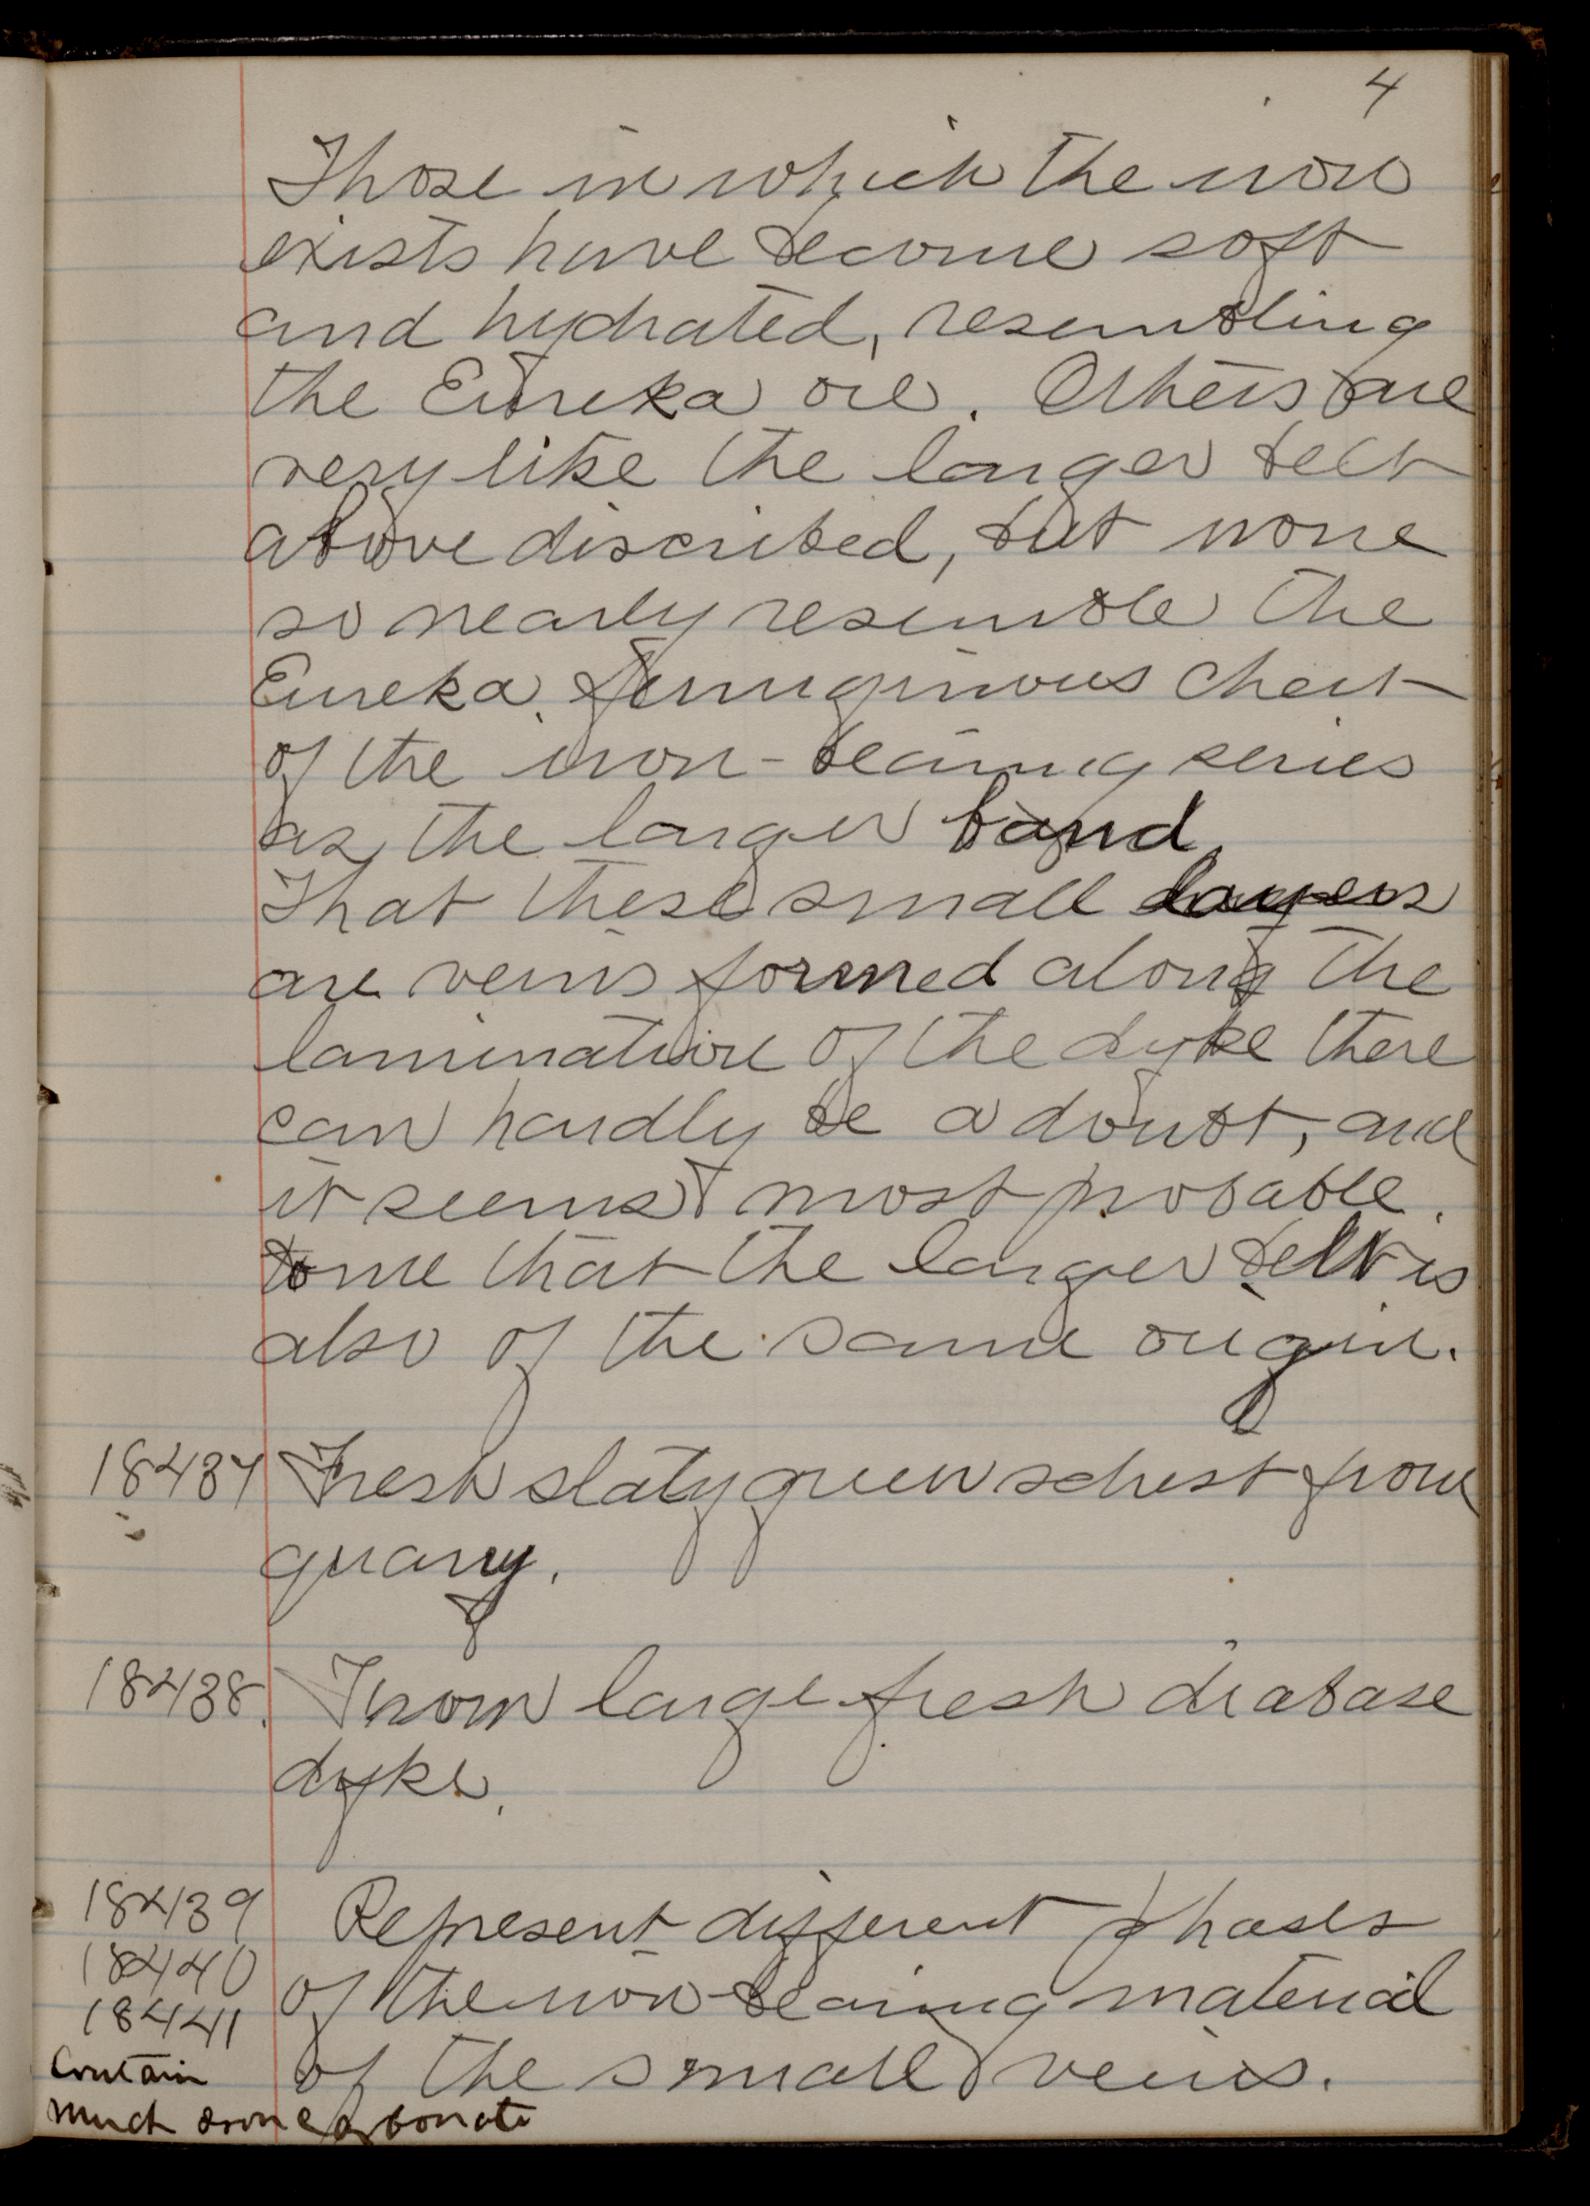 4
Those in which the iron
exists have become soft
and hydrated, resembling
the Eureka ore. Others are
very like the larger belt
above discribed, but none
so nearly resemble the
Eureka ferruginous chert
of the iron-bearing series
as the larger band.
That these small layers
are veins formed along the
lamination of the dyke there
can hardly be a doubt, and
it seems most probable
to me that the larger belt is
also of the same origin.
18437 Fresh slaty green schist from
quarry.
18438. From large fresh diabase
dyke.
18439 Represent different phases
18440 of the iron-bearing material
18441 of the small veins.
Contain
much iron carbonate